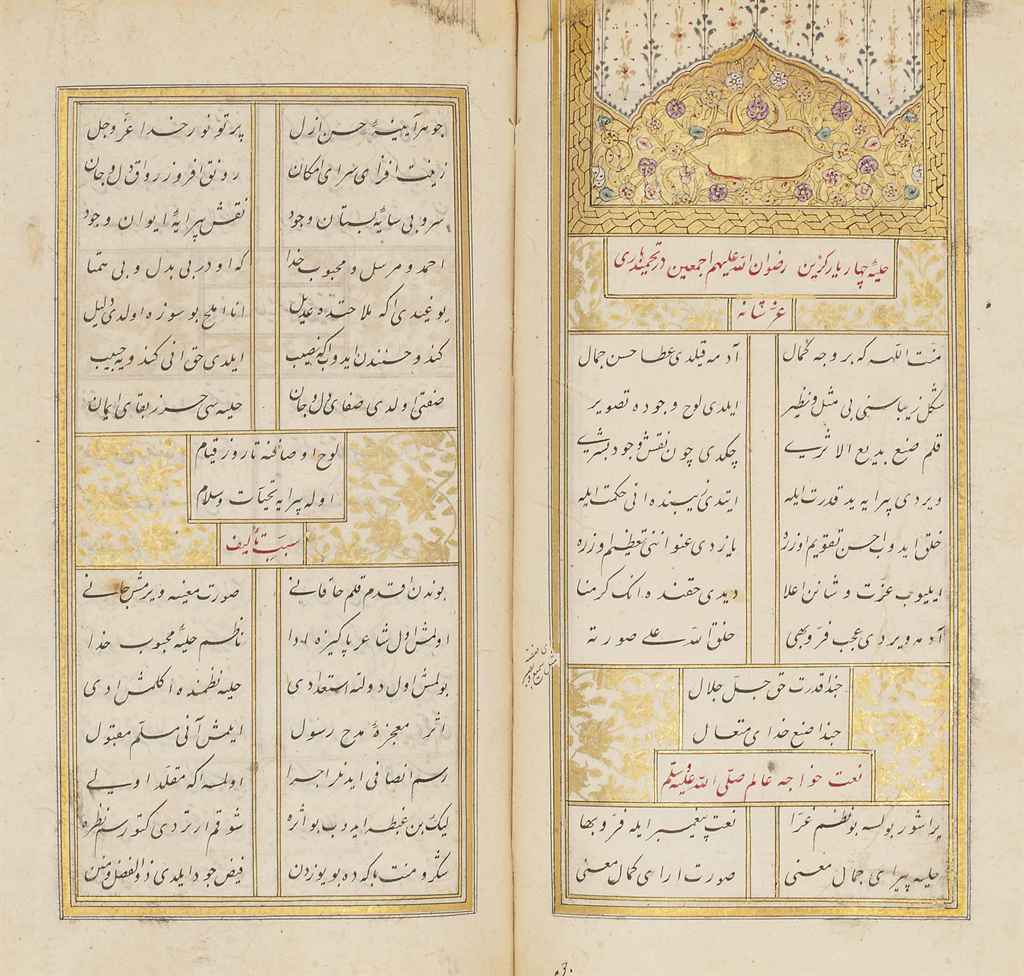 حلیۀ چهار یار گزین رضوان الله علیهم اجمعین در تحمید باری
عز شانه
منت اللهه که بر وجه کمال آدمه قیلدی عطا حسن جمال
شکل زیباسنی بی مثل و نظیر ایلدی لوح وجوده تصویر
قلم صنع بدیع الاثری چکدی چون نقش وجود بشری
ویردی پیرایه ید قدرت ایله ایتدی زیبنده انی حکمت ایله
خلق ایدوب احسن تقویم اوزره یازدی عنواننی تعظیم اوزره
ایلیوب عزت و شانن اعلا دیدی حقنده انک کرمنا
آدمه ویردی عجب فر و بهی خلق الله علی صورته
حبذا قدرت حق جل جلال
حبذا صنع خدای متعال
نعت خواجه عالم صلی الله علیه وسلم
یراشور بولسه بو نظم غرا نعت پیغمبر ایله فر و بها
حلیه پیرای جمال معنی صورت ارای کمال معنی
جوهر آیینۀ حسن ازل پرتو نور خدا عز و جل
زینت افزای سرای امکان رونق افروز رواق دل و جان
سرو بی سایۀ بستان وجود نقش پیرایۀ ایوان وجود
احمد و مرسل و محبوب خدا که اودر بی بدل و بی همتا
یوغیدی اکه ملاحتده عدیل انا املح بو سوزه اولدی دلیل
کندو حسنندن ایدوب اکه نصیب ایلدی حق انی کندویه حبیب
صفتی اولدی صفای دل و جان حلیه سی حرز بقای ایمان
لوح اوصافنه تا روز قیام
اوله پیرایه تحیات و سلام
سبب تألیف
بوندن اقدم قلم خاقانی صورت معنیه ویرمش جانی
اولمش اول شاعر پاکیزه ادا ناظم حلیۀ محبوب خدا
بولمش اول دولته استعدادی حلیه نظمنده اکلمش ادی
اثر معجزۀ مدح رسول ایلمش آنی مسلم مقبول
رسم انصافی ایدنلر اجرا اولمسه اکه مقلد اولی
لیک بن غبطه ایدوب بو اثره شوقم ارتردی کتورسم نظره
شکر و منت باکه ده بو یوزدن فیض جود ایلدی ذو الفضل و منن